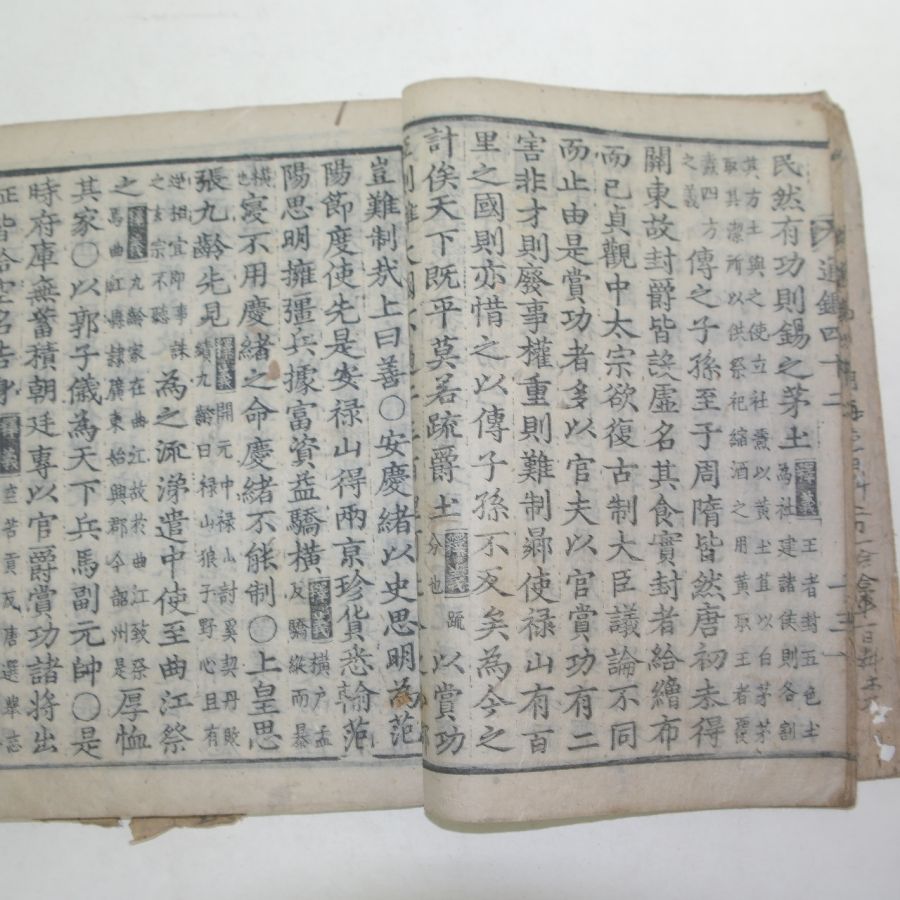 民然有功則錫之茅土 釋義 王者封五色土為社建諸侯則各割
其方土與之使立社燾以黃土苴以白茅茅取其潔所以供祭祀縮酒之用黃取王者覆
燾四方之義 傳之子孫至于周隋皆然唐初未得
關東故封爵皆設虛名其食實封者給繒布
而已貞觀中太宗欲復古制大臣議論不同
而止由是賞功者多以官夫以官賞功有二
害非才則廢事權重則難制曏使祿山有百
里之國則亦惜之以傳子孫不反矣為今之
計俟天下既平莫若疏爵土 釋義 疏分也 以賞功
豈難制哉上曰善〇安慶緒以史思明為范
陽節度使先是安祿山得兩京珍貨悉輸范
陽思明擁彊兵據富資益驕橫 釋義 橫戶孟反驕縱而暴
橫也 寖不用慶緒之命慶緒不能制〇上皇思
張九齡先見 釋義 開元中祿山討奚契丹敗績九齡曰祿山狼子野心且有
逆相宜即事誅之玄宗不聽 為之流涕遣中使至曲江祭
之 釋義 九齡家在曲江故於曲江致祭焉曲江縣隸廣東始興郡今韶州是 厚恤
其家〇以郭子儀為天下兵馬副元帥〇是
時府庫無蓄積朝廷專以官爵賞功諸將出
征皆給空名告身 釋義